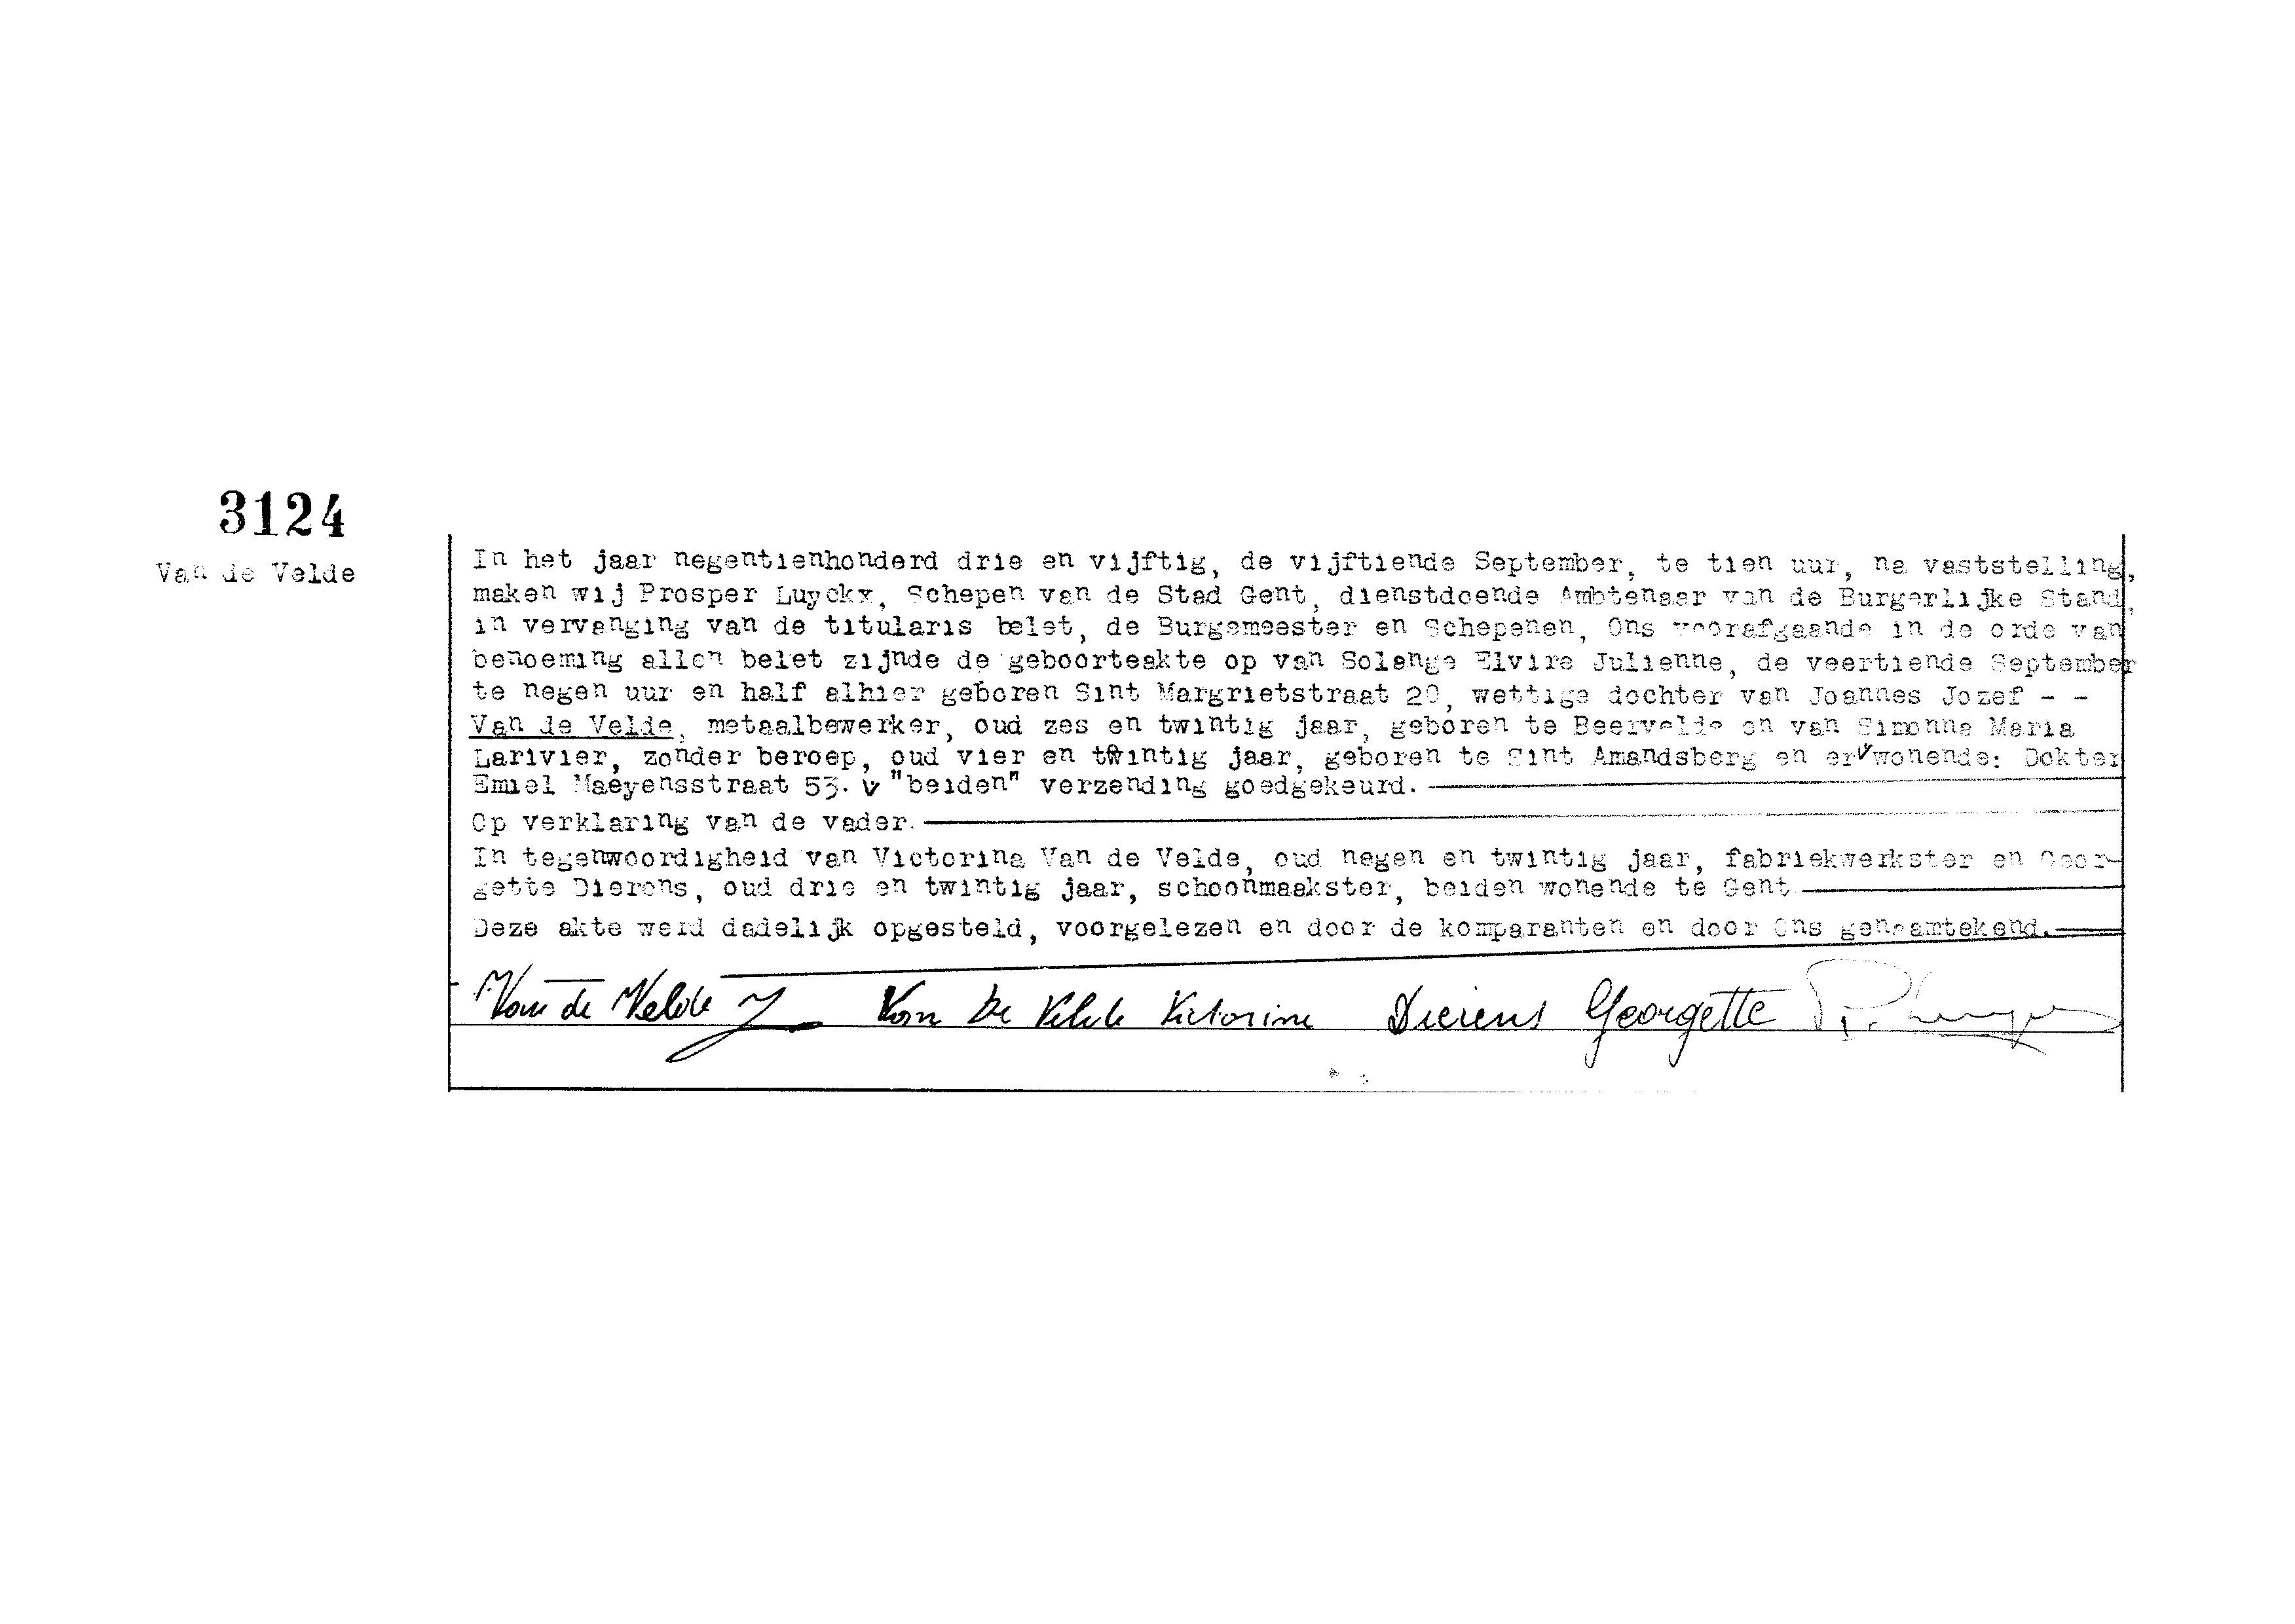 3124
Van de Velde
In het jaar negentienhonderd drie en vijftig, de vijftiende September, te tien uur, na vaststelling,
maken wij Prosper Luyckx, Schepen van de Stad Gent, dienstdoende Ambtenaar van de Burgerlijke Stand,
in vervanging van de titularis belet, de Burgemeester en Schepenen, Ons voorafgaande in de orde van
benoeming allen belet zijnde de geboorteakte op van Solange Elvire Julienne, de veertiende September
te negen uur en half alhier geboren Sint Margrietstraat, wettige dochter van Joannes Jozef - -
Van de Velde, metaalbewerker, oud zes en twintig jaar, geboren te Beervelde en van Simonne Maria
Larivier, zonder beroep, oud vier en twintig jaar, geboren te Sint Amandsberg en er v wonende: Dokter
Emiel Maeyensstraat 53. v "beiden" verzending goedgekeurd.
Op verklaring van de vader.
In tegenwoordigheid van Victorina Van de Velde, oud negen en twintig jaar, fabriekwerkster en Geor-
gette Dierens, oud drie en twintig jaar, schoonmaakster, beiden wonende te Gent.
Deze akte werd dadelijk opgesteld, voorgelezen en door de komparanten en door Ons genaamtekend.
Van de Velde J Van De Velde Victorine Dierens Georgette